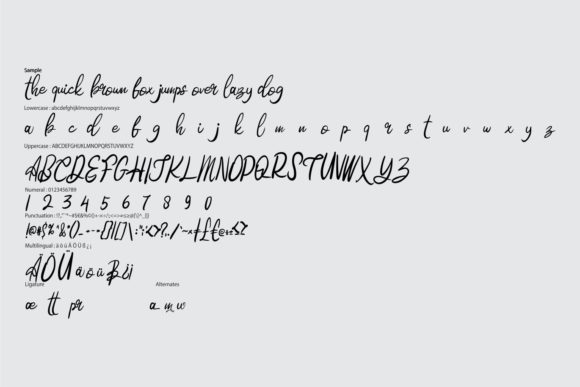 Sample
the quick brown fox jumps over lazy dog
Lowercase : abcdefghijklmnopqrstuvwxyz
a b c d e f g h i j k l m n o p q r s t u v w x y z
Uppercase : ABCDEFGHIJKLMNOPQRSTUVWXYZ
ABCDEFGHIJKLMNOPQRSTUVWXYZ
Numeral : 0123456789
1 2 3 4 5 6 7 8 9 0
Punctuation :
Multilingual : ä ö ü Ä Ö Ü ß ¿ ¡
ÄÖÜ ä ö ü ß ¿ ¡
Ligature Alternates
æ tt pr a m w